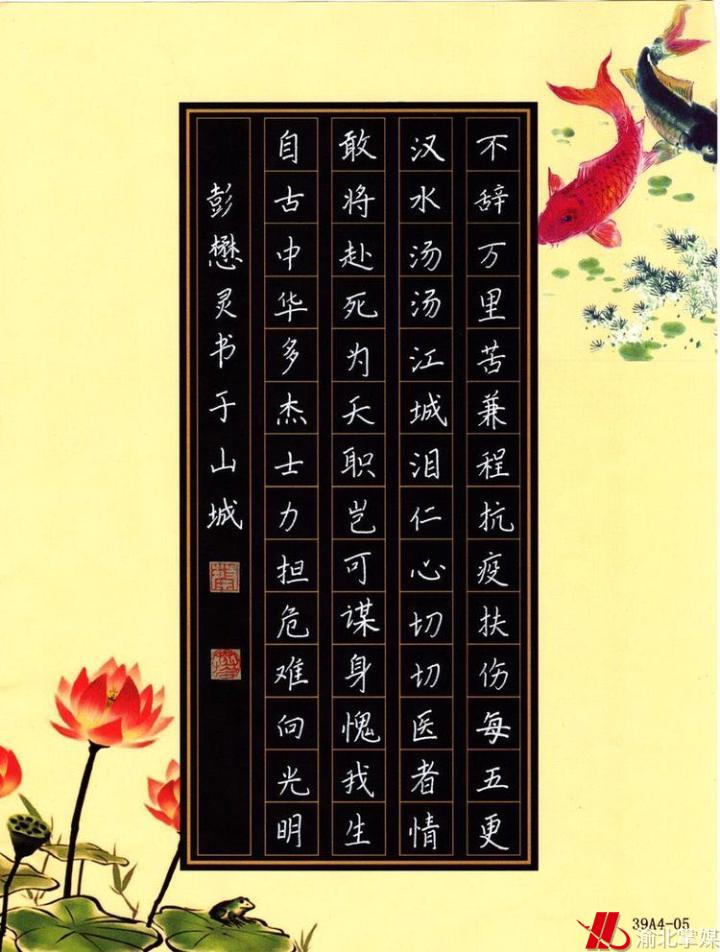 不辞万里苦兼程抗疫扶伤每五更
汉水汤汤江城泪仁心切切医者情
敢将赴死为天职岂可谋身愧我生
自古中华多杰士力担危难向光明
彭懋灵书于山城
39A4-05
渝北掌媒